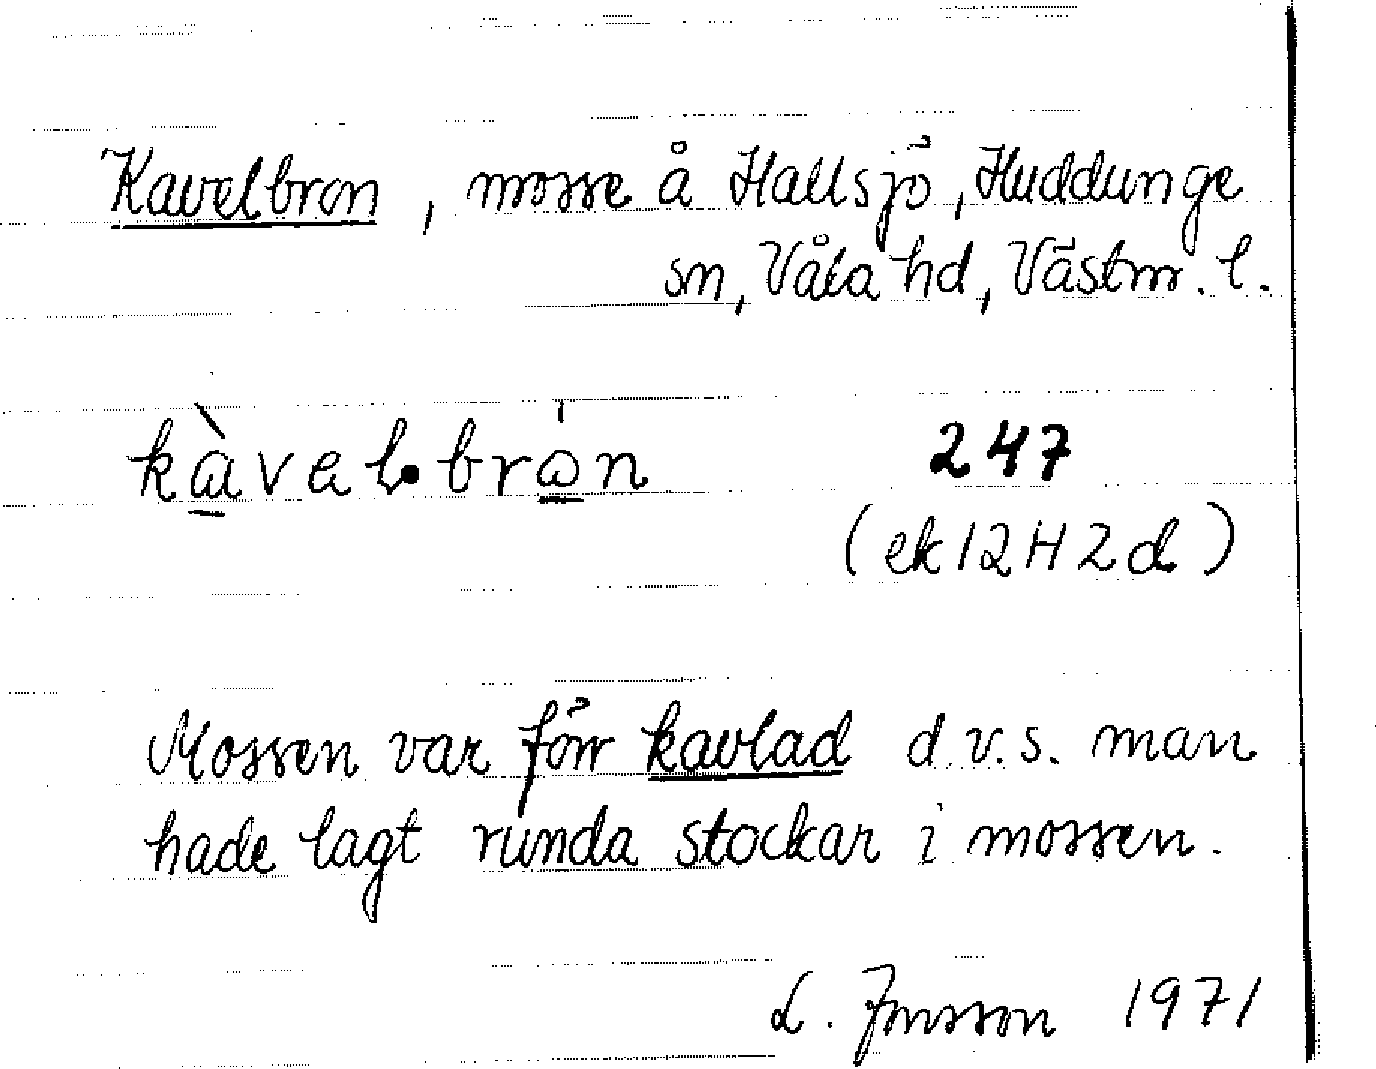 Kavelbron, mosse å Hallsjö, Huddunge
sn, Våla hd, Västm. l.
kàvel.brån 247
(ek 12H2d)
Mossen var förr kavlad d.v.s. man
hade lagt runda stockar i mossen.
L. Jonsson 1971